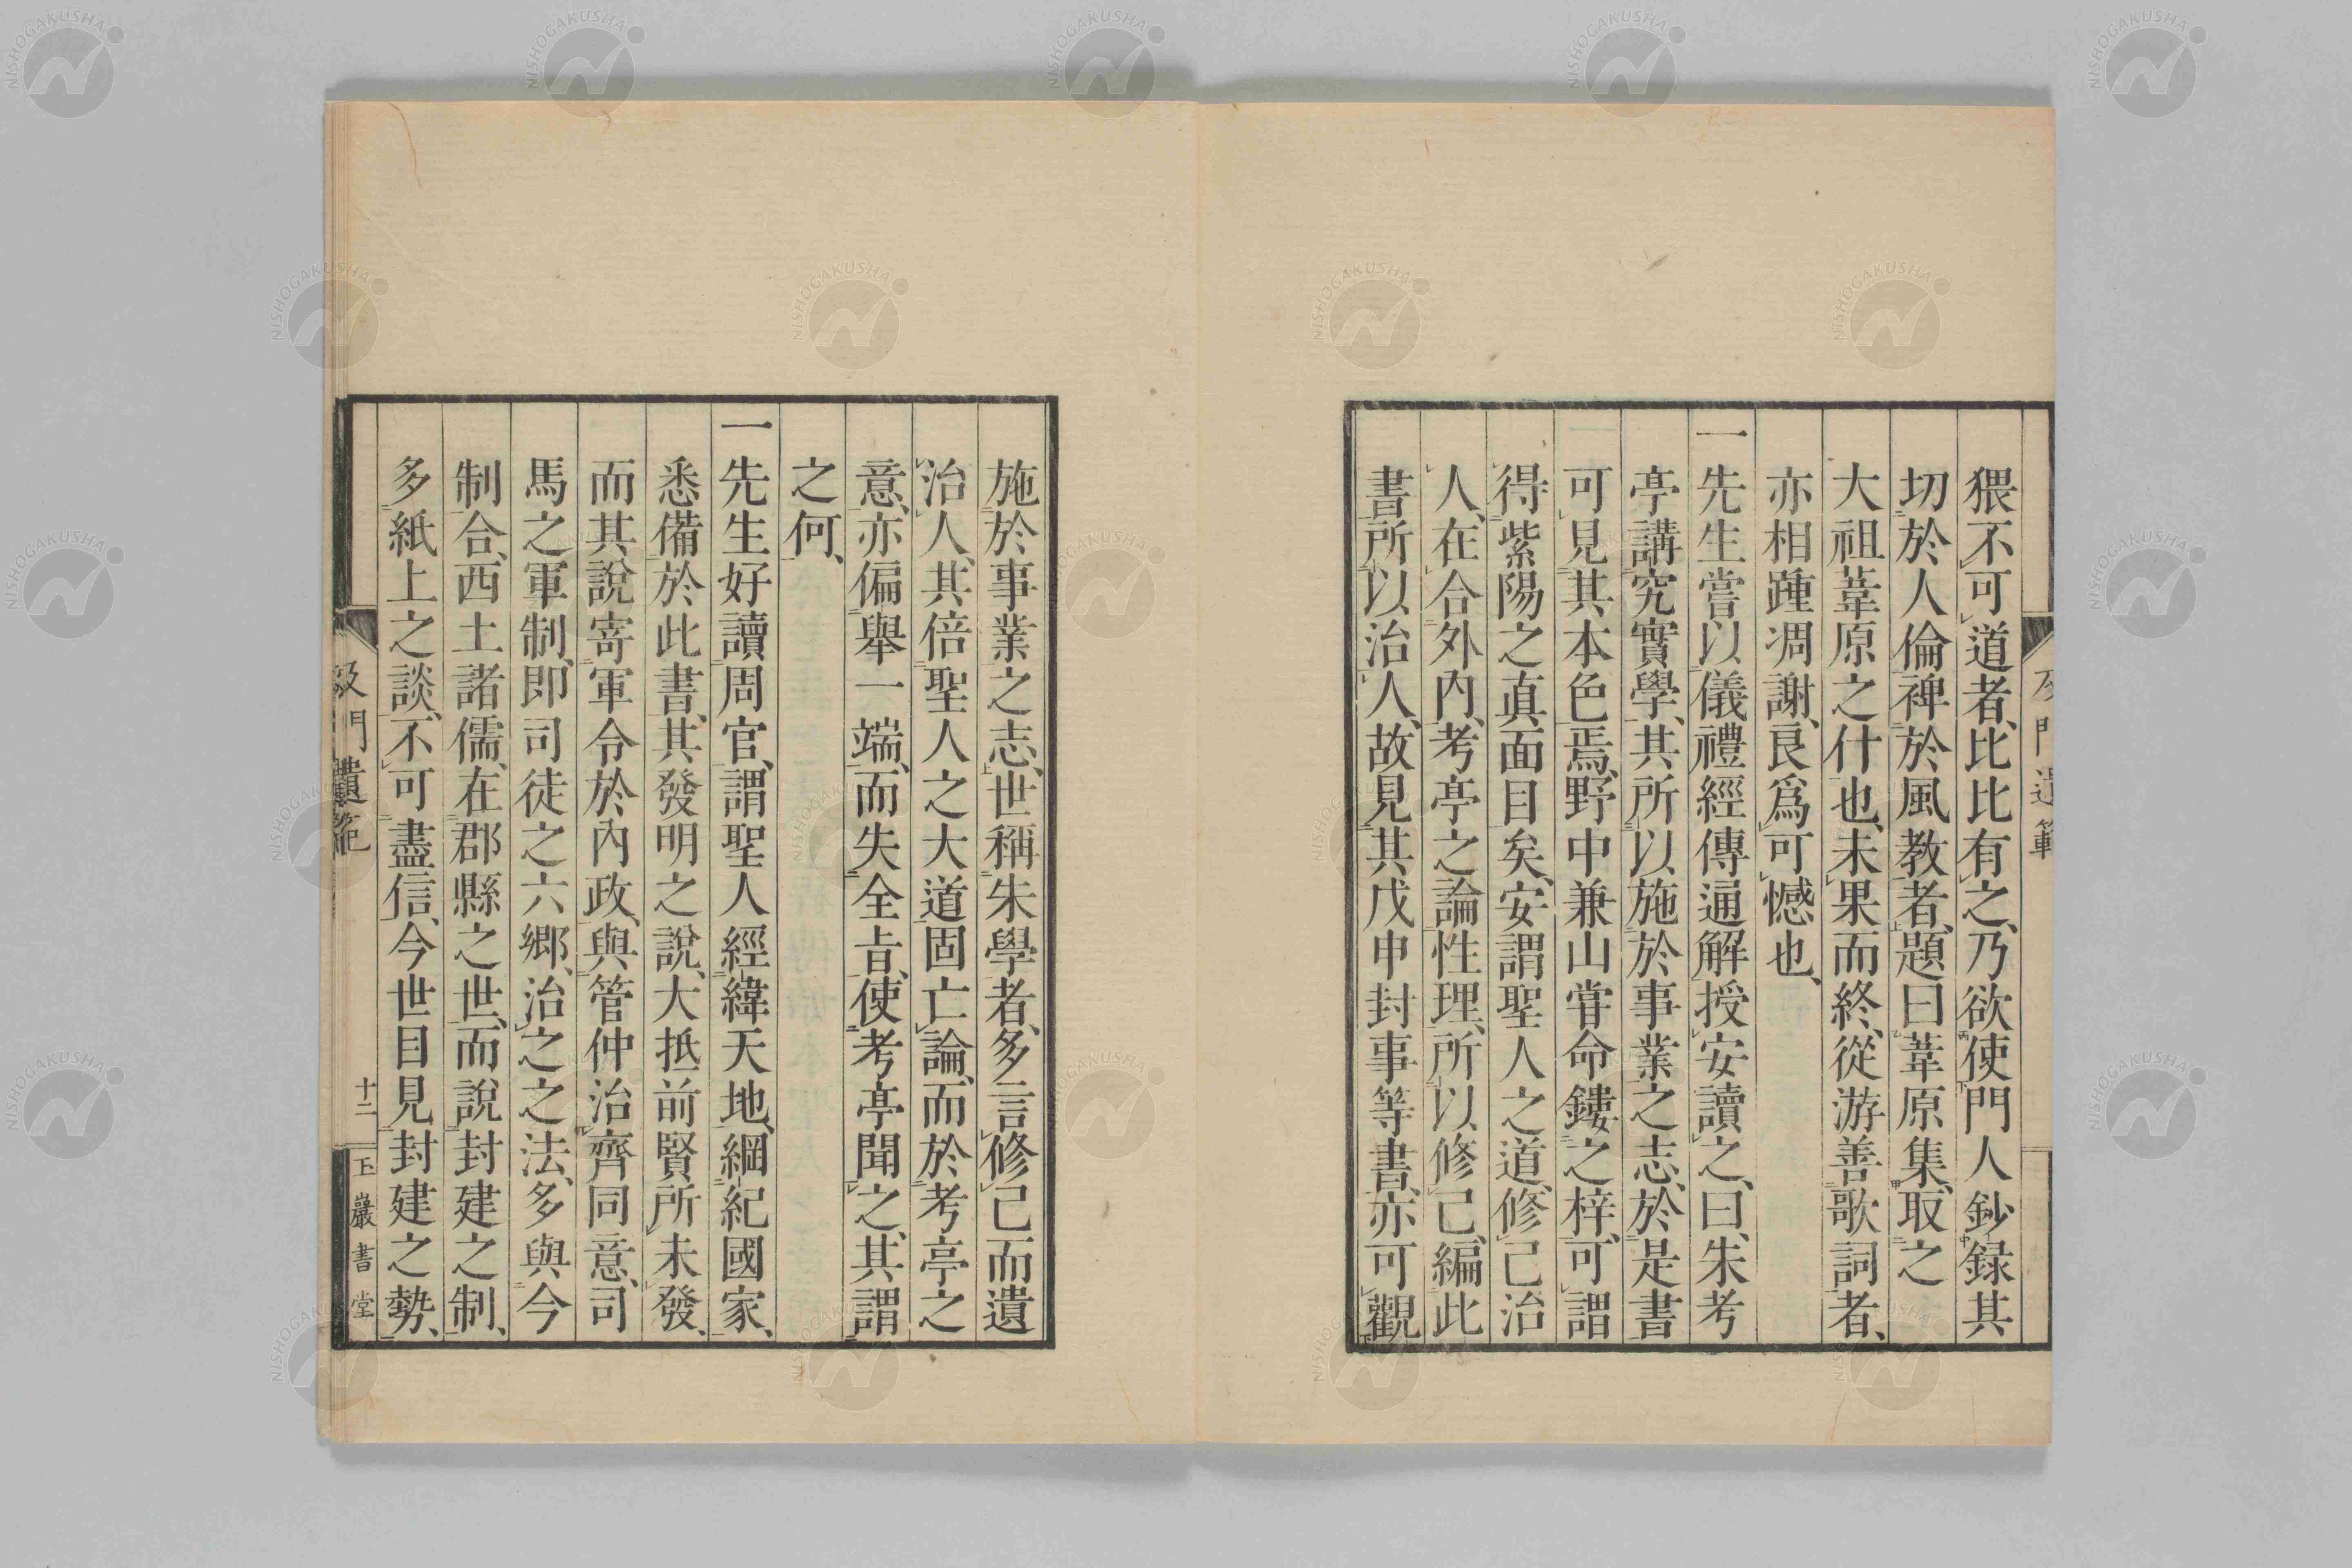 猥不可道者、比比有之、乃欲使門人鈔録其
切於人倫裨於風教者、題曰葦原集、取之
大祖葦原之什也、未果而終、從游善歌詞者、
亦相踵凋謝、良爲可憾也、
一先生嘗以儀禮經傳通解授安讀之、曰、朱考
亭講究實學、其所以施於事業之志、於是書
可見其本色焉、野中兼山甞命鏤之梓、可謂
得紫陽之真面目矣、安謂聖人之道、修己治
人、在合外內、考亭之論性理、所以修己、編此
書所以治人、故見其戊申封事等書、亦可觀
施於事業之志、世稱朱學者、多言修己而遺
治人、其倍聖人之大道固亡論、而於考亭之
意、亦偏舉一端、而失全旨、使考亭聞之、其謂
之何、
一先生好讀周官、謂聖人經緯天地、綱紀國家、
悉備於此書、其發明之說、大抵前賢所未發、
而其說寄軍令於內政、與管仲治齊同意、司
馬之軍制、即司徒之六鄉、治之之法、多與今
制合、西土諸儒、在郡縣之世、而說封建之制、
多紙上之談、不可盡信、今世目見封建之勢、
及門遺範
十二
玉巖書堂